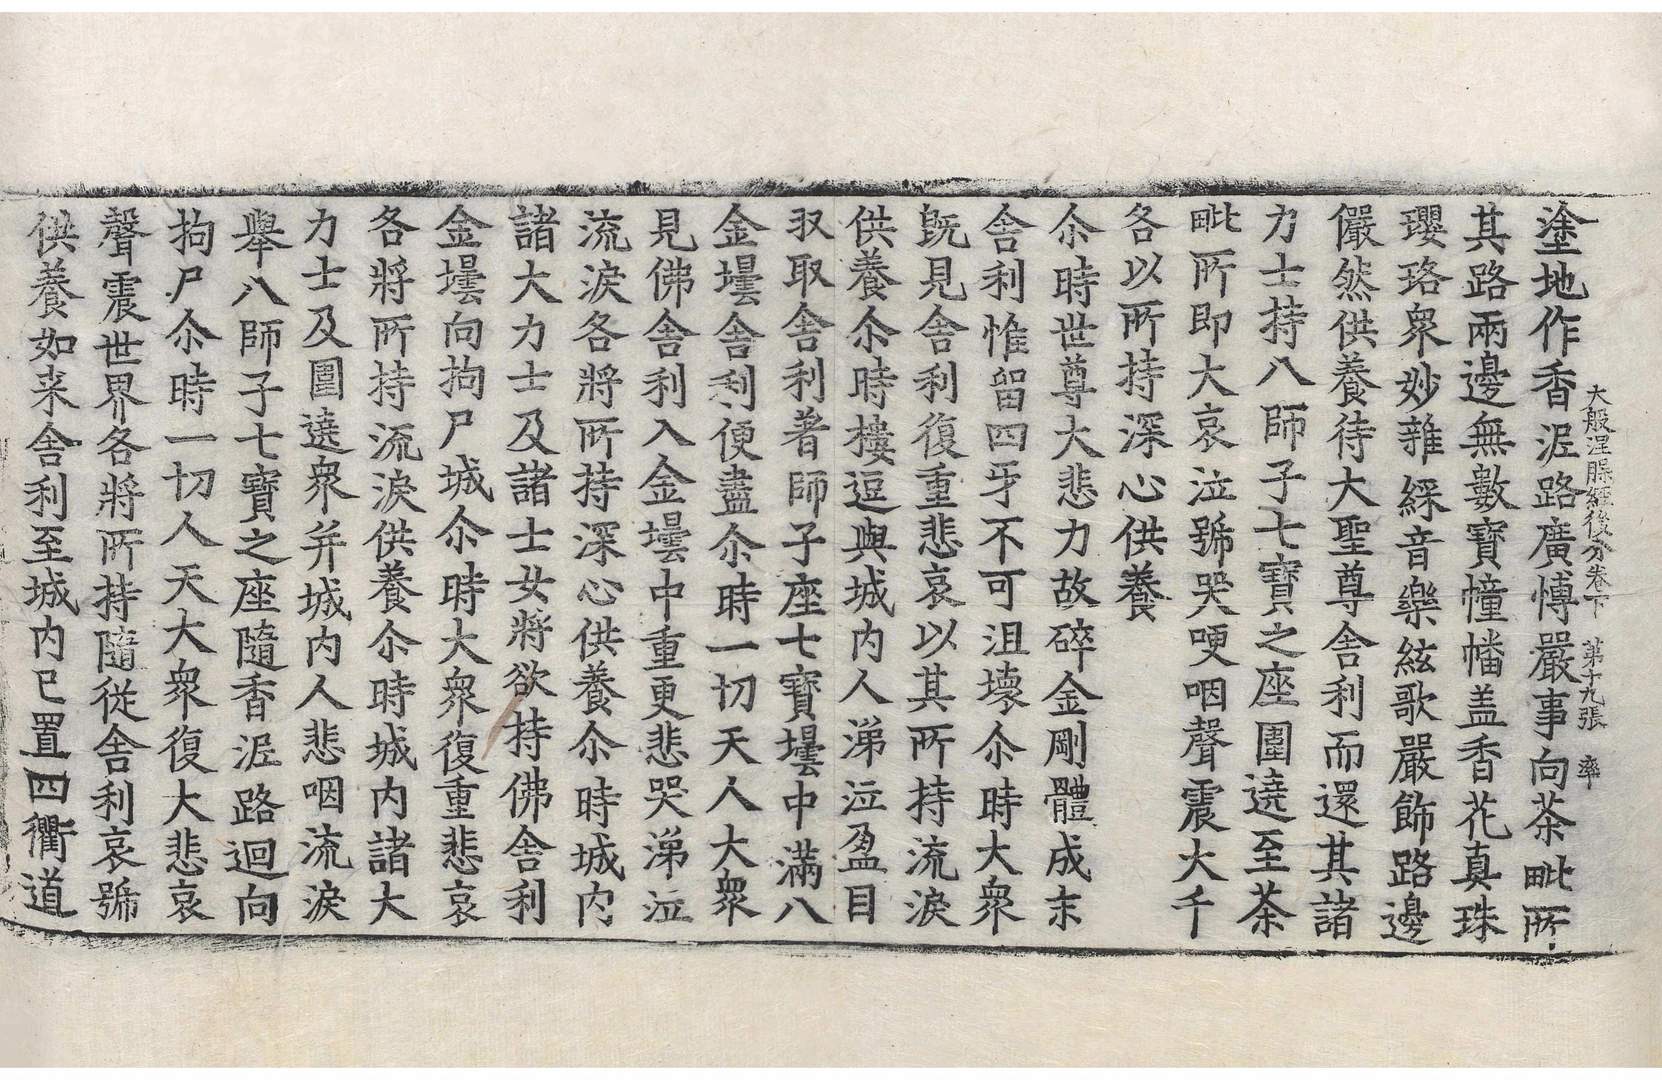 大般涅槃經後分卷下 第十九張 率
塗地作香泥路廣博嚴事向茶毗所
其路兩邊無數寶幢幡盖香花真珠
瓔珞衆妙雜綵音樂絃歌嚴飾路邊
儼然供養待大聖尊舍利而還其諸
力士持八師子七寶之座圍遶至茶
毗所即大哀泣號哭哽咽聲震大千
各以所持深心供養
尒時世尊大悲力故碎金剛體成末
舍利惟留四牙不可沮壞尒時大衆
旣見舍利復重悲哀以其所持流淚
供養尒時樓逗與城内人涕泣盈目
収取舍利著師子座七寶壜中滿八
金壜舍利便盡尒時一切天人大衆
見佛舍利入金壜中重更悲哭涕泣
流淚各將所持深心供養尒時城内
諸大力士及諸士女將欲持佛舍利
金壜向拘尸城尒時大衆復重悲哀
各將所持流淚供養尒時城内諸大
力士及圍遶衆并城内人悲咽流淚
舉八師子七寶之座隨香泥路迴向
拘尸尒時一切人天大衆復大悲哀
聲震世界各將所持隨從舍利哀號
供養如来舍利至城内已置四衢道